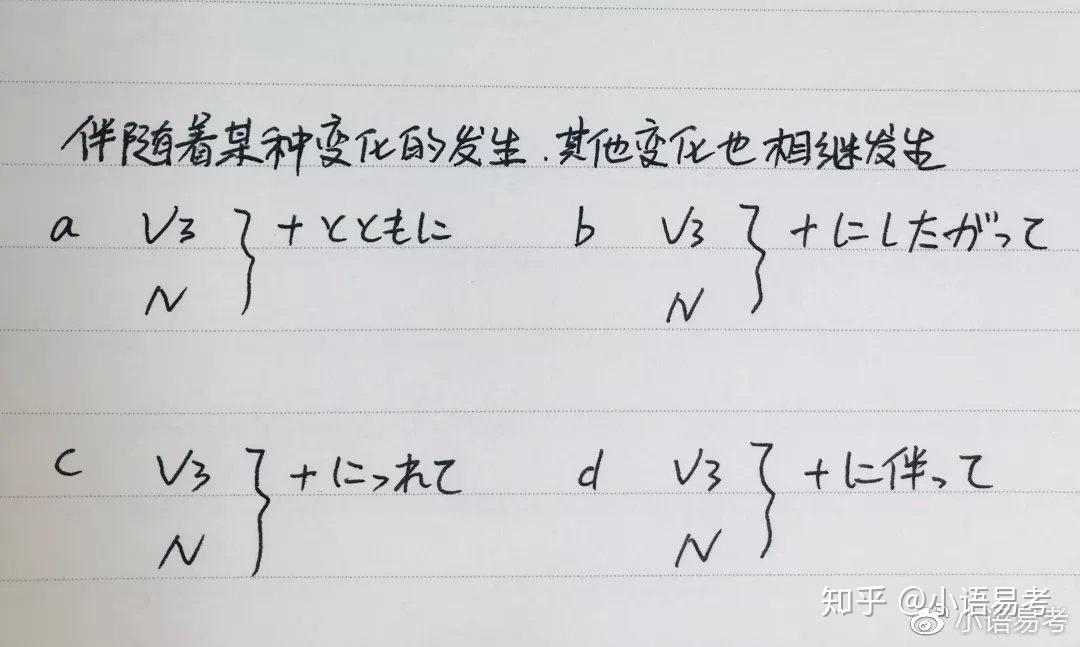 伴随着某种变化的发生.其他变化也相继发生
a V3 N } + とともに
b V3 N } + にしたがって
c V3 N } + につれて
d V3 N } + に伴って
知乎 @小语易考
小语易考